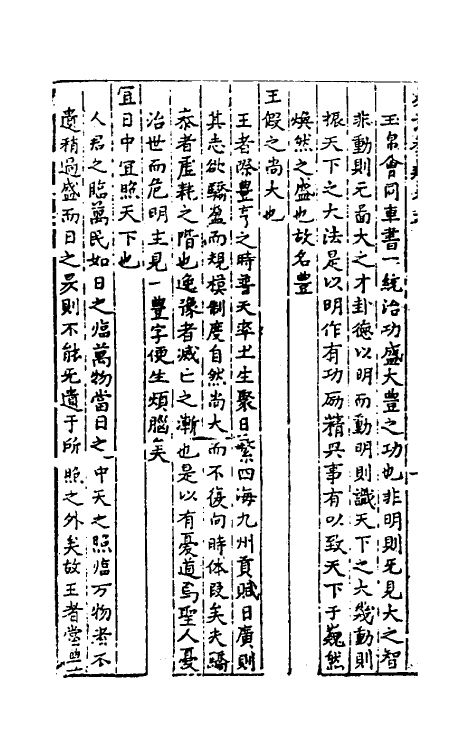 玉帛會同車書一統治功盛大豐之功也非明則无見大之智
非動則无啚大之才卦德以明而動明則識天下之大幾動則
振天下之大法是以明作有功砺精興事有以致天下于巍然
煥然之盛也故名豐
王假之尚大也
王者際豐亨之時普天率土生聚日繁四海九州貢賦日廣則
其志欲驕盈而規模制度自然尚大而不復向時体段矣夫驕
泰者虛耗之階也逸豫者滅亡之漸也是以有憂道焉聖人憂
治世而危明主見一豐字便生煩腦矣
宜日中宜照天下也
人君之臨萬民如日之臨萬物當日之中天之照臨万物者不
遺稍過盛而日之昃則不能无遺于所照之外矣故王者當